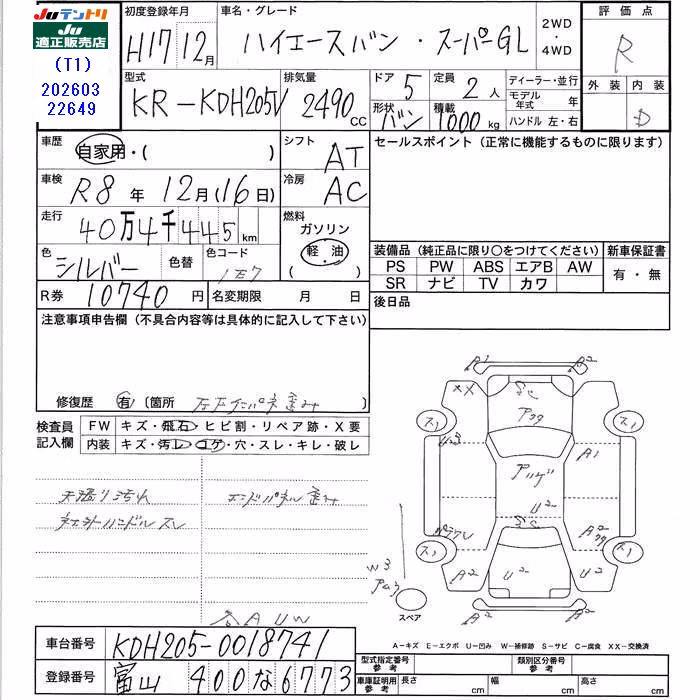 Juテントリ
Ju
適正販売店
(T1)
202603
22649
初度登録年月
H17 12月
車名・グレード
ハイエースバン・スーパーGL
2WD
・
4WD
評価点
R
型式
KR-KDH205V
排気量
2490 cc
ドア
5
形状
バン
定員
2人
積載
1000 kg
ディーラー・並行
モデル年式 年
ハンドル 左・右
外装 内装
D
車歴
自家用・( )
シフト
AT
セールスポイント(正常に機能するものに限ります)
車検
R8年 12月(16日)
冷房
AC
走行
40万4千445km
燃料
ガソリン
軽・油
( )
色
シルバー
色替
色コード
1E7
装備品(純正品に限り〇をつけてください)
新車保証書
PS PW ABS エアB AW
SR ナビ TV カワ
有・無
R券 10740円
名変期限 月 日
後日品
注意事項申告欄(不具合内容等は具体的に記入して下さい)
修復歴 有 〔箇所 〕
検査員
記入欄
FW キズ・飛石・ヒビ割・リペア跡・X要
内装 キズ・汚レ・コゲ・穴・スレ・キレ・破レ
天張り汚れ
エンドパネル歪み
ハンドルスレ
各AUW
A1
A2
XX
U3
A1
U2
A2
A2
U2
U2
W3
スペア
A2
A-キズ E-エクボ U-凹み W-補修跡 S-サビ C-腐食 XX-交換済
車台番号 KDH205-0018741
登録番号 富山 400 な 6773
型式指定番号
参考
類別区分番号
参考
車庫証明用
参考
長さ cm
幅 cm
高さ cm